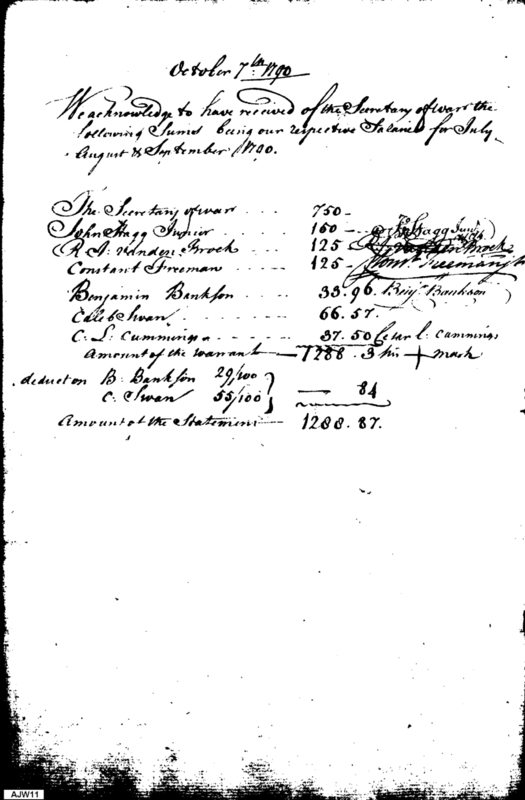 October 7th 1790
We acknowledge to have received of the Secretary of war the
following Sums being our respective Salaries for July
August & September 1790.
The Secretary of war .... 750 -
John Stagg Junior .... 150 - Jno Stagg Junr
R. J. Vanden Broek .... 125 Vanden Broek
Constant Freeman .... 125 - Const. Freeman
Benjamin Bankson .... 33.96. Benj. Bankson
Caleb Swan .... 66.57.
C. L. Cummings .... 37.50 Cesar L. Cummings
Amount of the warrant — 1288. 3 his + mark
deduct on B. Bankson 29/100
C. Swan 55/100 } — 84
Amount of the Statement — 1288.87.
AJW11